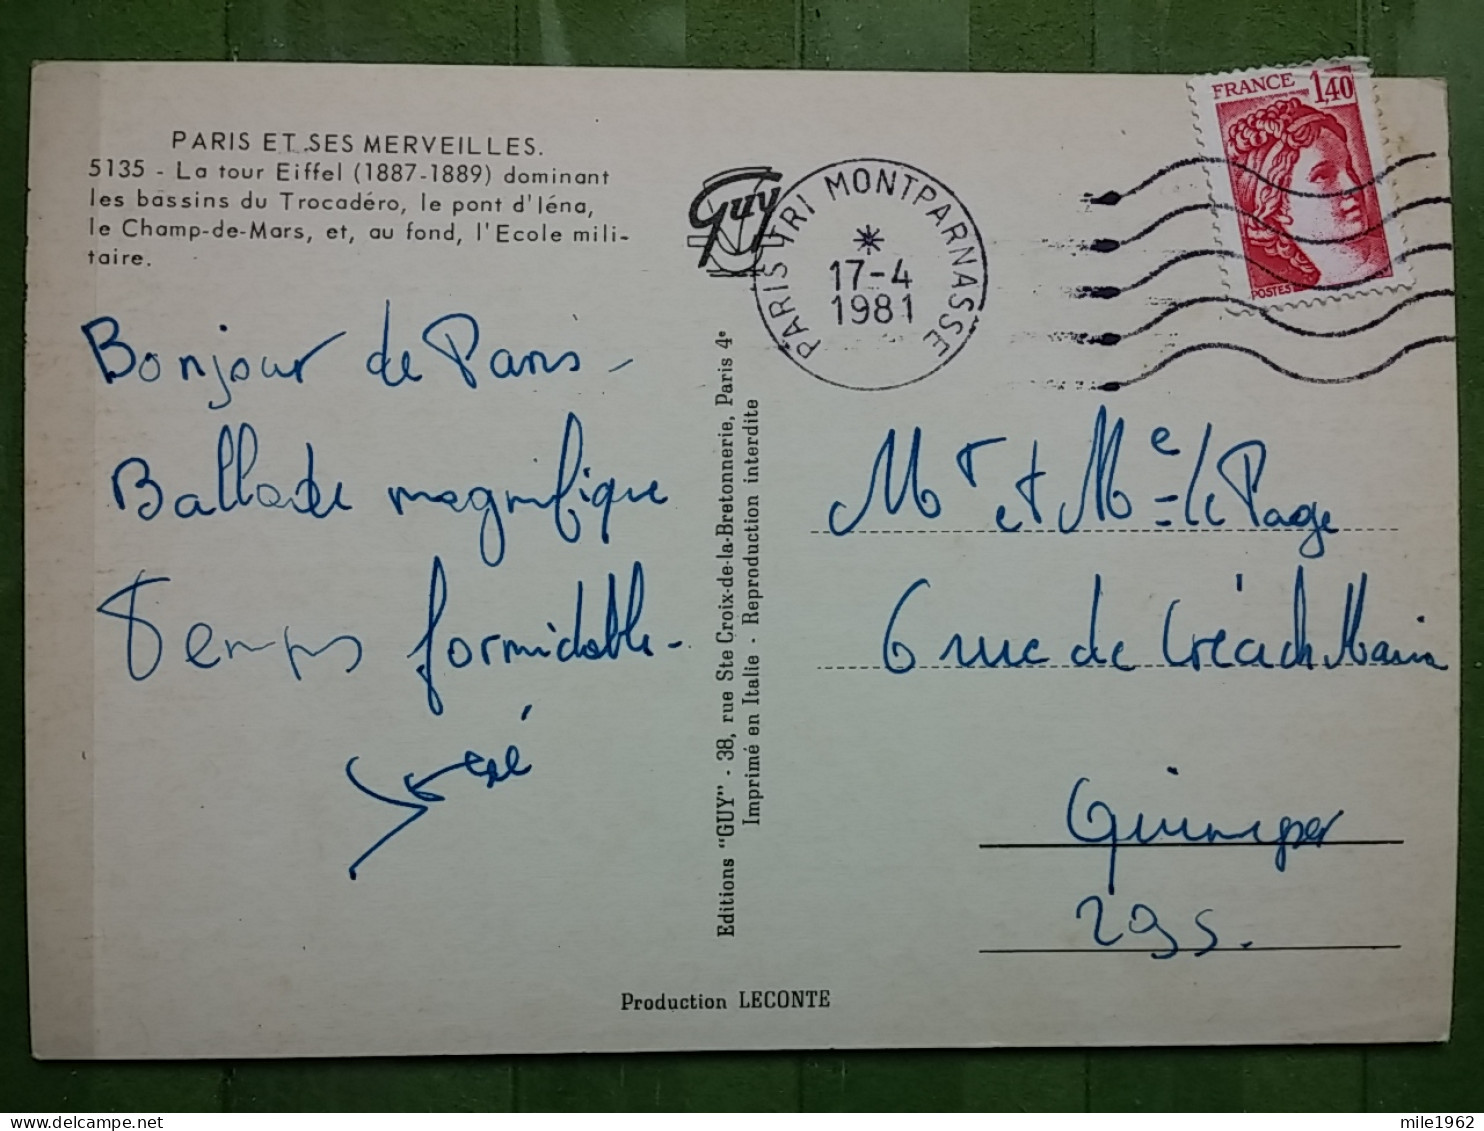 PARIS ET SES MERVEILLES.
5135 - La tour Eiffel (1887-1889) dominant
les bassins du Trocadéro, le pont d'Iéna,
le Champ-de-Mars, et, au fond, l'Ecole mili-
taire.
Guy
PARIS TRI MONTPARNASSE
17-4
1981
FRANCE 1,40
POSTES
Bonjour de Paris -
Ballade magnifique
Temps formidable -
Editions "GUY" - 38, rue Ste Croix-de-la-Bretonnerie, Paris 4e
Imprimé en Italie - Reproduction interdite
Mr et Me le Page
6 rue de Créach Marin
Quimper
29S.
Production LECONTE
mile1962